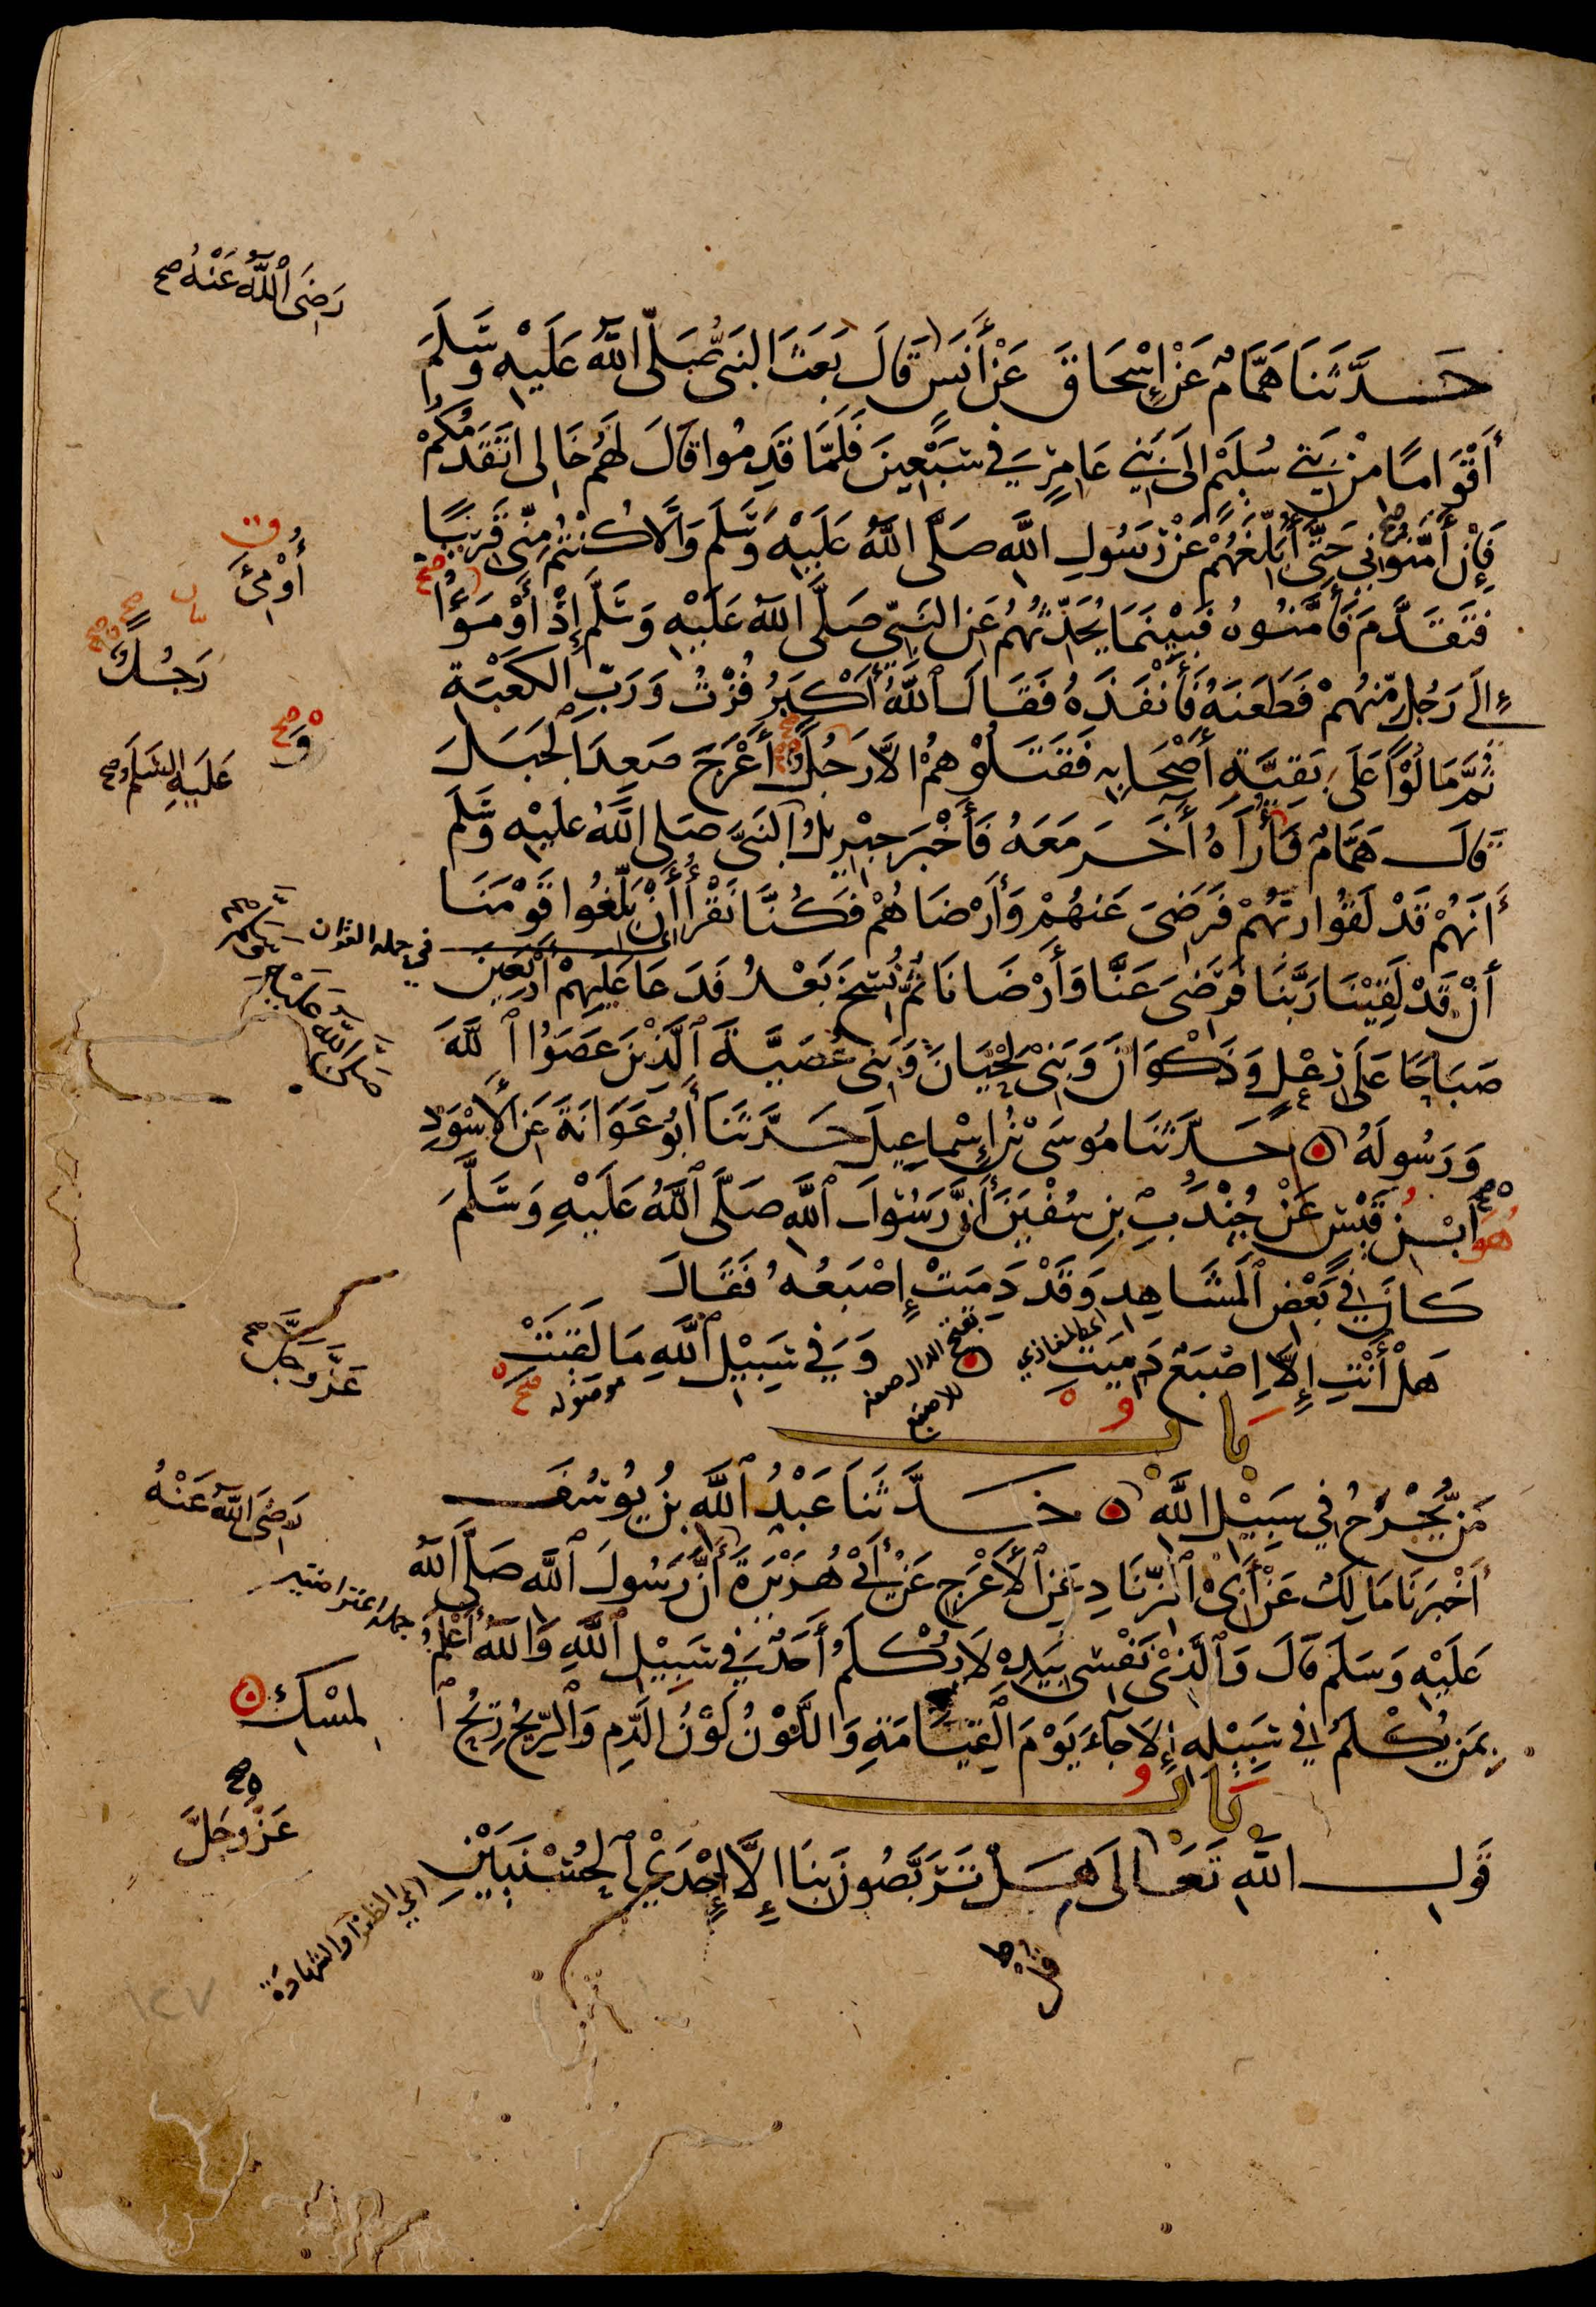 رَضِيَ ٱللَّهُ عَنْهُ صح
حَدَّثَنَا هَمَّامٌ عَنْ إِسْحَاقَ عَنْ أَنَسٍ قَالَ بَعَثَ النَّبِيُّ صَلَّى اللَّهُ عَلَيْهِ وَسَلَّمَ
أَقْوَامًا مِنْ بَنِي سُلَيْمٍ إِلَى بَنِي عَامِرٍ فِي سَبْعِينَ فَلَمَّا قَدِمُوا قَالَ لَهُمْ خَالِي أَتَقَدَّمُكُمْ
فَإِنْ أَمَّنُونِي حَتَّى أُبَلِّغَهُمْ عَنْ رَسُولِ اللَّهِ صَلَّى اللَّهُ عَلَيْهِ وَسَلَّمَ وَإِلَّا كُنْتُمْ مِنِّي قَرِيبًا
فَتَقَدَّمَ فَأَمَّنُوهُ فَبَيْنَمَا يُحَدِّثُهُمْ عَنِ النَّبِيِّ صَلَّى اللَّهُ عَلَيْهِ وَسَلَّمَ إِذْ أَوْمَؤُا
أُوْمِئَ
إِلَى رَجُلٍ مِنْهُمْ فَطَعَنَهُ فَأَنْفَذَهُ فَقَالَ ٱللَّهُ أَكْبَرُ فُزْتُ وَرَبِّ الْكَعْبَةِ
رَجُلٌ
ثُمَّ مَالُوْا عَلَى بَقِيَّةِ أَصْحَابِهِ فَقَتَلُوْهُمْ إِلَّا رَجُلًا أَعْرَجَ صَعِدَ الْجَبَلَ
وَ صح
قَالَ هَمَّامٌ فَأُرَاهُ آخَرَ مَعَهُ فَأَخْبَرَ جِبْرِيلُ النَّبِيَّ صَلَّى اللَّهُ عَلَيْهِ وَسَلَّمَ
عَلَيْهِ السَّلَمُ صح
أَنَّهُمْ قَدْ لَقُوا رَبَّهُمْ فَرَضِيَ عَنْهُمْ وَأَرْضَاهُمْ فَكُنَّا نَقْرَأُ أَنْ بَلِّغُوا قَوْمَنَا
في جملة القران
أَنْ قَدْ لَقِيْنَا رَبَّنَا فَرَضِيَ عَنَّا وَأَرْضَانَا ثُمَّ نُسِخَ بَعْدُ فَدَعَا عَلَيْهِمْ أَرْبَعِينَ
صَلَّى اللَّهُ عَلَيْهِ وَسَلَّمَ صح
صَبَاحًا عَلَى رِعْلٍ وَذَكْوَانَ وَبَنِيْ لِحْيَانَ وَبَنِي عُصَيَّةَ ٱلَّذِيْنَ عَصَوُا ٱللَّهَ
وَرَسُولَهُ حَدَّثَنَا مُوسَى بْنُ إِسْمَاعِيلَ حَدَّثَنَا أَبُو عَوَانَةَ عَنِ الْأَسْوَدِ
هُوَ ابْنُ قَيْسٍ عَنْ جُنْدُبِ بْنِ سُفْيَنَ أَنَّ رَسُوْلَ ٱللَّهِ صَلَّى ٱللَّهُ عَلَيْهِ وَسَلَّمَ
كَانَ فِي بَعْضِ ٱلْمَشَاهِدِ وَقَدْ دَمِيَتْ إِصْبَعُهُ فَقَالَ
اي المغازي
هَلْ أَنْتِ إِلَّا إِصْبَعٌ دَمِيَتِ وَفِي سَبِيْلِ ٱللَّهِ مَا لَقِيَتْ
بفتح الدال صفة للاصبع
موصوله
عَزَّ وَجَلَّ صح
بَابُ
مَنْ يُجْرَحُ فِي سَبِيْلِ اللَّهِ حَدَّثَنَا عَبْدُ ٱللَّهِ بْنُ يُوسُفَ
رَضِيَ اللَّهُ عَنْهُ
أَخْبَرَنَا مَالِكٌ عَنْ أَبِي ٱلزِّنَادِ عَنِ ٱلْأَعْرَجِ عَنْ أَبِيْ هُرَيْرَةَ أَنَّ رَسُولَ ٱللَّهِ صَلَّى اللَّهُ
عَلَيْهِ وَسَلَّمَ قَالَ وَٱلَّذِيْ نَفْسِي بِيَدِهِ لَا يُكْلَمُ أَحَدٌ فِي سَبِيْلِ ٱللَّهِ وَاللَّهُ أَعْلَمُ
جملة اعتراضيه
بِمَنْ يُكْلَمُ فِي سَبِيْلِهِ إِلَّا جَاءَ يَوْمَ الْقِيَامَةِ وَاللَّوْنُ لَوْنُ الدَّمِ وَٱلرِّيحُ رِيْحُ ٱ
لْمِسْكِ
بَابُ
عَزَّ وَجَلَّ صح
قَوْلِ اللَّهِ تَعَالَى هَلْ تَرَبَّصُونَ بِنَا إِلَّا إِحْدَى ٱلْحُسْنَيَيْنِ
اي الظفر او الشهادة
١٢٧